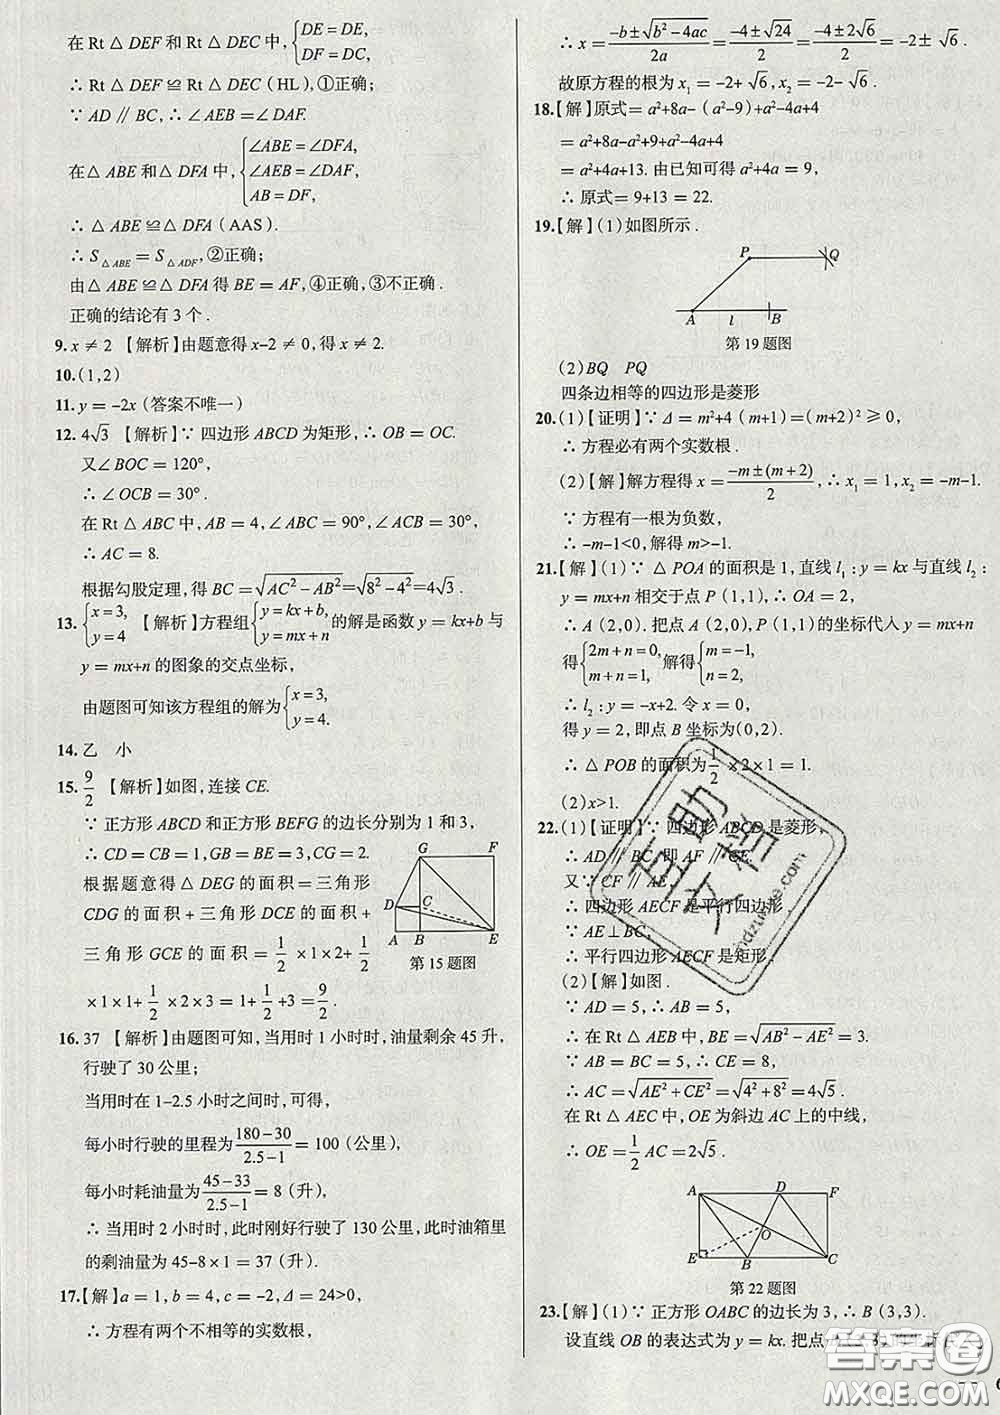 在 Rt △ DEF 和 Rt △ DEC 中, {DE = DE, DF = DC,
∴ Rt △ DEF ≌ Rt △ DEC (HL), ①正确;
∵ AD ∥ BC, ∴ ∠AEB = ∠DAF.
在△ ABE 和△ DFA 中, {∠ABE = ∠DFA, ∠AEB = ∠DAF, AB = DF,
∴ △ ABE ≌△ DFA (AAS).
∴ S△ABE = S△ADF, ②正确;
由△ ABE ≌△ DFA 得 BE = AF, ④正确, ③不正确.
正确的结论有 3 个 .
9. x ≠ 2 【解析】由题意得 x-2 ≠ 0, 得 x ≠ 2.
10. (1,2)
11. y = -2x (答案不唯一)
12. 4√3 【解析】∵ 四边形 ABCD 为矩形, ∴ OB = OC.
又∠BOC = 120°,
∴ ∠OCB = 30° .
在 Rt △ ABC 中, AB = 4, ∠ABC = 90°, ∠ACB = 30°,
∴ AC = 8.
根据勾股定理, 得 BC = √(AC² - AB²) = √(8² - 4²) = 4√3 .
13. {x = 3, y = 4 【解析】方程组{y = kx+b, y = mx+n的解是函数 y = kx+b 与
y = mx+n 的图象的交点坐标,
由题图可知该方程组的解为{x = 3, y = 4.
14. 乙 小
15. 9/2 【解析】如图, 连接 CE.
∵ 正方形 ABCD 和正方形 BEFG 的边长分别为 1 和 3,
∴ CD = CB = 1, GB = BE = 3, CG = 2.
根据题意得△ DEG 的面积 = 三角形
CDG 的面积 + 三角形 DCE 的面积 +
三角形 GCE 的面积 = 1/2 × 1×2+ 1/2
×1×1+ 1/2 ×2×3 = 1+ 1/2 +3 = 9/2 .
G F
D C
A B E
第 15 题图
16. 37 【解析】由题图可知, 当用时 1 小时时, 油量剩余 45 升,
行驶了 30 公里;
当用时在 1–2.5 小时之间时, 可得,
每小时行驶的里程为 (180-30)/(2.5-1) = 100 (公里),
每小时耗油量为 (45-33)/(2.5-1) = 8 (升)
∴ 当用时 2 小时时, 此时刚好行驶了 130 公里, 此时油箱里
的剩油量为 45-8 × 1 = 37 (升) .
17. 【解】a = 1, b = 4, c = -2, Δ = 24>0,
∴ 方程有两个不相等的实数根,
∴ x = (-b±√(b² - 4ac))/2a = (-4±√24)/2 = (-4±2√6)/2 = -2± √6 .
故原方程的根为 x₁ = -2+ √6, x₂ = -2- √6 .
18. 【解】原式 = a²+8a- ( a²-9)+a²-4a+4
= a²+8a-a²+9+a²-4a+4
= a²+4a+13. 由已知可得 a²+4a = 9,
∴ 原式 = 9+13 = 22.
19. 【解】(1) 如图所示 .
P Q
A l B
第 19 题图
(2) BQ PQ
四条边相等的四边形是菱形
20. (1)【证明】∵ Δ = m²+4 (m+1) = (m+2) ² ≥ 0,
∴ 方程必有两个实数根 .
(2)【解】解方程得 x = (-m±(m+2))/2, ∴ x₁ = 1, x₂ = -m-1.
∵ 方程有一根为负数,
∴ -m-1<0, 解得 m>-1.
21. 【解】(1) ∵ △ POA 的面积是 1, 直线 l₁ : y = kx 与直线 l₂ :
y = mx+n 相交于点 P (1,1), ∴ OA = 2,
∴ A (2,0). 把点 A (2,0), P (1,1) 的坐标代入 y = mx+n
得{2m + n = 0, m + n = 1, 解得{m = -1, n = 2,
∴ l₂ : y = -x+2. 令 x = 0,
得 y = 2, 即点 B 坐标为(0, 2).
∴ △ POB 的面积为 1/2 ×2×1 = 1.
(2) x>1.
22. (1)【证明】∵ 四边形 ABCD 是菱形,
∴ AD ∥ BC, 即 AF ∥ CE.
又∵ CF ∥ AE,
∴ 四边形 AECF 是平行四边形 .
∵ AE⊥BC,
∴ 平行四边形 AECF 是矩形 .
(2)【解】如图.
∵ AD = 5, ∴ AB = 5,
∴ 在 Rt △ AEB 中, BE = √(AB² - AE²) = 3.
∵ AB = BC = 5, ∴ CE = 8,
∴ AC = √(AE² + CE²) = √(4² + 8²) = 4√5 .
在 Rt △ AEC 中, OE 为斜边 AC 上的中线,
∴ OE = 1/2 AC = 2√5 .
A D F
O
E B C
第 22 题图
23. 【解】(1) ∵ 正方形 OABC 的边长为 3, ∴ B (3,3).
设直线 OB 的表达式为 y = kx. 把点
互助文档
hdzuoye.com
答案圈
MXQE.COM